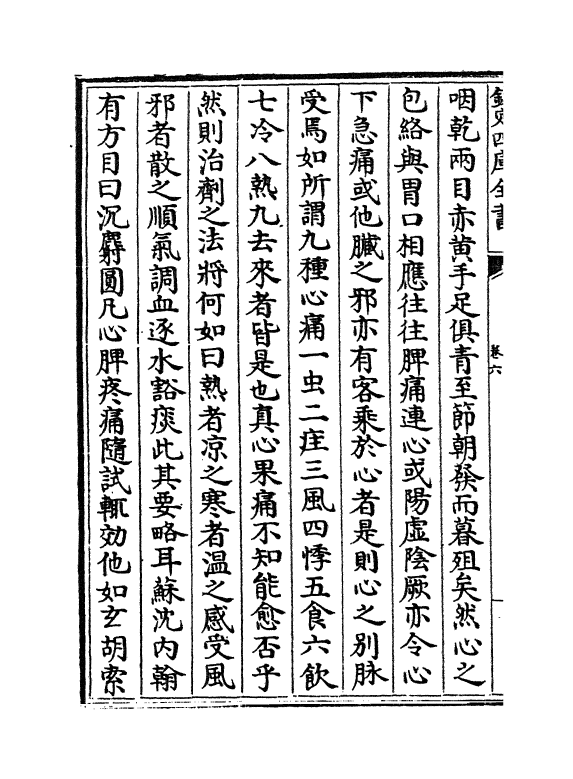 欽定四庫全書
卷六
咽乾兩目赤黄手足俱青至節朝發而暮殂矣然心之
包絡與胃口相應往往脾痛連心或陽虛陰厥亦令心
下急痛或他臟之邪亦有客乘於心者是則心之别脉
受焉如所謂九種心痛一虫二疰三風四悸五食六飲
七冷八熱九去來者皆是也真心果痛不知能愈否乎
然則治劑之法將何如曰熱者凉之寒者温之感受風
邪者散之順氣調血逐水豁痰此其要略耳蘇沈内翰
有方目曰沉麝圓凡心脾疼痛隨試輒効他如玄胡索